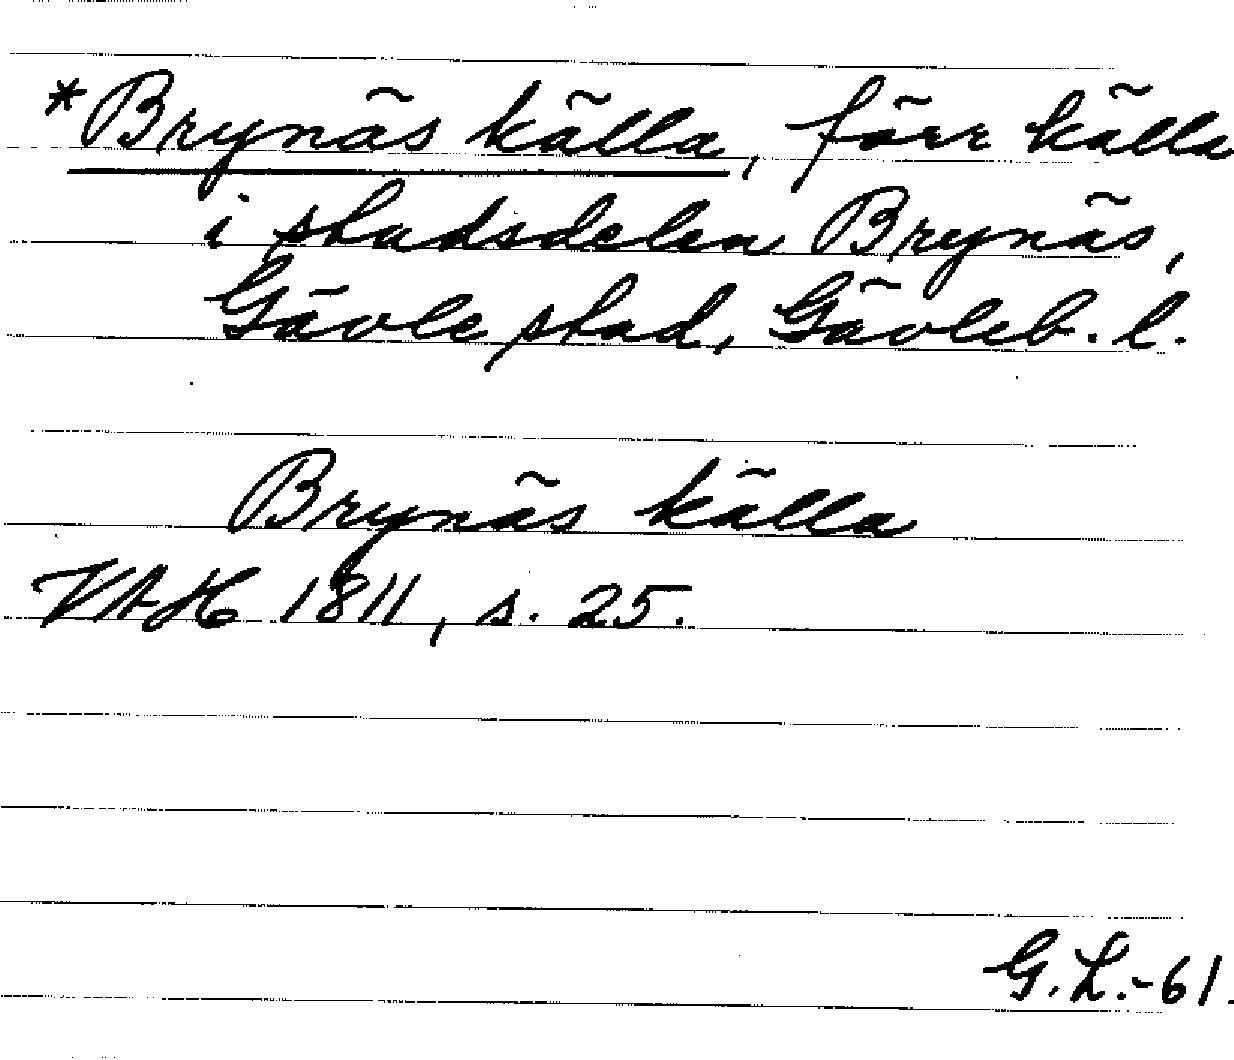 *Brynäs källa, förr källa
i stadsdelen Brynäs,
Gävle stad, Gävleb. l.
Brynäs källa
VAH 1811, s. 25.
G.L.-61.